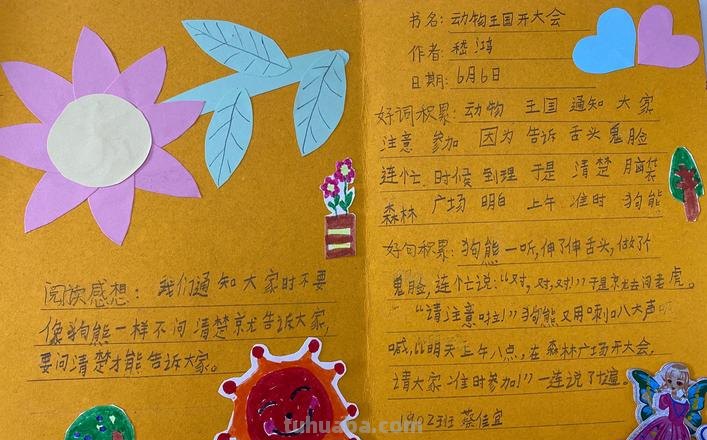 阅读感想：我们通知大家时不要
像狗熊一样不问清楚京尤告诉大家，
要问清楚才能告诉大家。
书名：动物王国开大会
作者：嵇鸿
日期：6月6日
好词积累：动物 王国 通知 大家
注意 参加 因为 告诉 舌头 鬼脸
连忙 时候 到理 于是 清楚 脑袋
森林 广场 明白 上午 准时 狗熊
好句积累：狗熊一听，伸了伸舌头，做了个
鬼脸，连忙说：“对，对，对！”于是京尤去问老虎。
“请注意啦！”狗熊又用喇叭大声
喊，“明天上午八点，在森林广场开大会，
请大家准时参加！”一连说了十遍。
1902班 蔡佳宜
tuhuaba.com